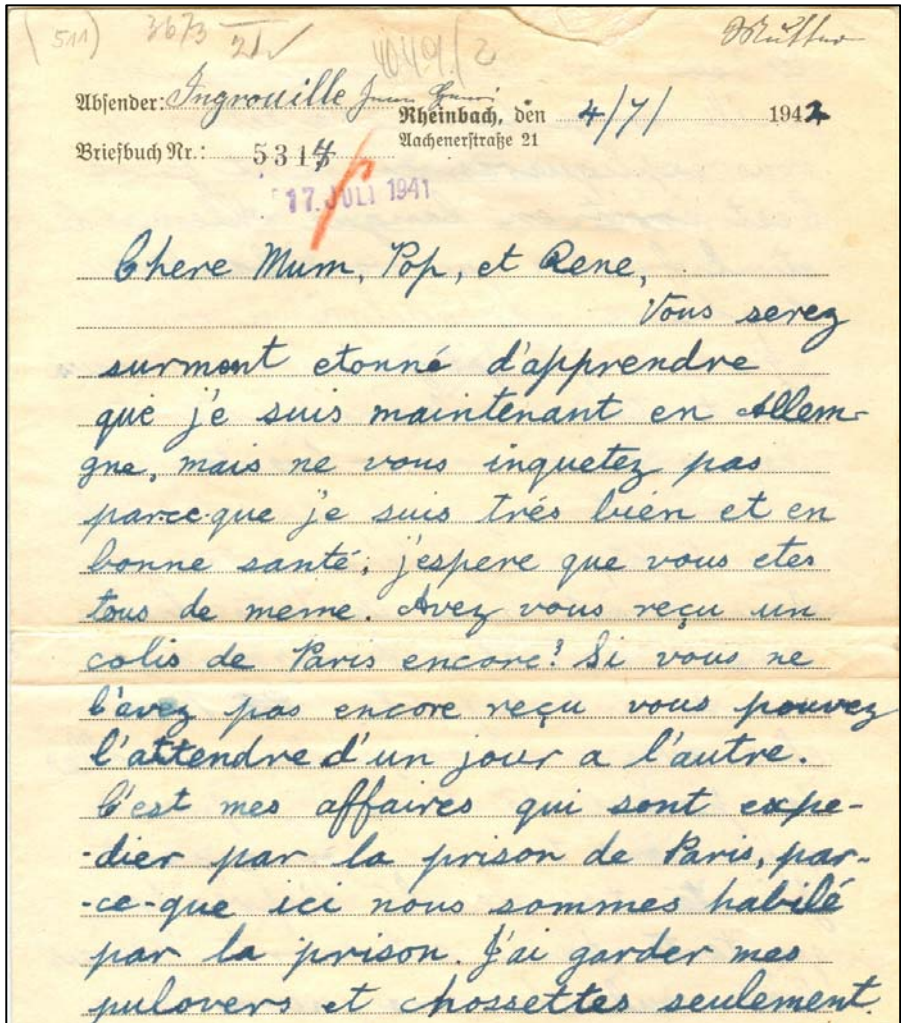 (511) 3673 21 4049/2 Mutter
Absender: Ingrouille
Rheinbach, den 4/7/ 1942
Aachenerstraße 21
Briefbuch Nr.: 5314
17. JULI 1941
Chere Mum, Pop, et Rene,
Vous serez
surment etonné d'apprendre
que je suis maintenant en Allem-
gne, mais ne vous inquetez pas
parce-que je suis trés bien et en
bonne santé; j'espere que vous etes
tous de meme. Avez vous reçu un
colis de Paris encore? Si vous ne
l'avez pas encore reçu vous pouvez
l'attendre d'un jour a l'autre.
C'est mes affaires qui sont expe-
-dier par la prison de Paris, par-
-ce-que ici nous sommes habilé
par la prison. J'ai garder mes
pulovers et chossettes seulement